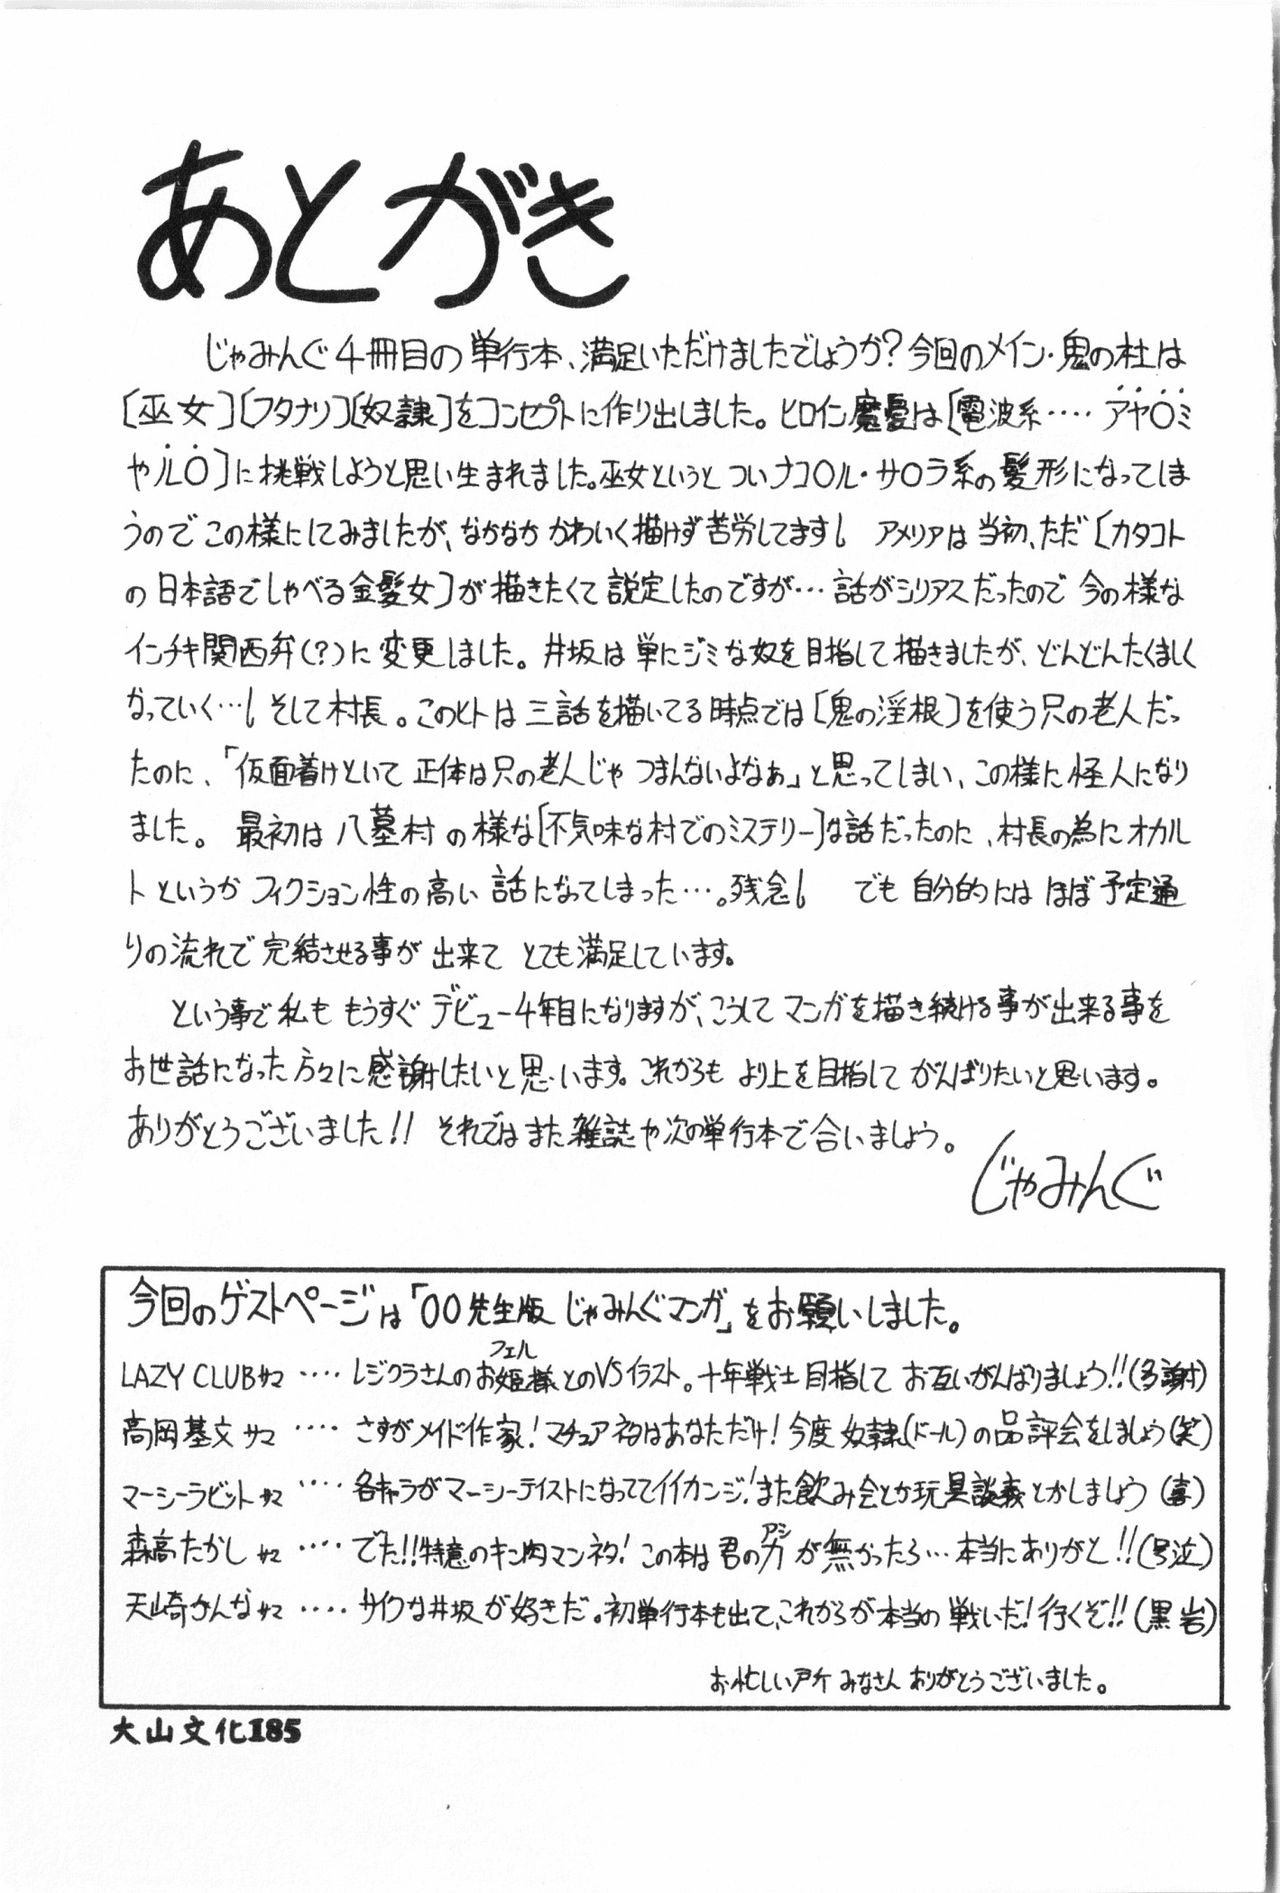 あとがき
じゃみんぐ4冊目の単行本、満足いただけましたでしょうか?今回のメイン・鬼の杜は
[巫女][フタナリ][奴隷]をコンセプトに作り出しました。ヒロイン魔憂は[電波系‥‥‥アヤ○ミ
やル○]に挑戦しようと思い生まれました。巫女というとついナコ○ル・サ○ラ系の髪形になってしま
うのでこの様にしてみましたが、なかなかかわいく描けず苦労してます! アメリアは当初、ただ[カタコト
の日本語でしゃべる金髪女]が描きたくて説定したのですが…話がシリアスだったので今の様な
インチキ関西弁(?)に変更しました。井坂は単にジミな奴を目指して描きましたが、どんどんたくましく
なっていく…! そして村長。このヒトは三話を描いてる時点では[鬼の淫根]を使う只の老人だっ
たのに、「仮面着けといて正体は只の老人じゃつまんないよなぁ」と思ってしまい、この様に怪人になり
ました。最初は八墓村の様な[不気味な村でのミステリー]な話だったのに、村長の為にオカル
トというかフィクション性の高い話になってしまった…。残念! でも自分的にはほぼ予定通
りの流れで完結させる事が出来てとても満足しています。
という事で私ももうすぐデビュー4年目になりますが、こうしてマンガを描き続ける事が出来る事を
お世話になった方々に感謝したいと思います。これからもより上を目指してがんばりたいと思います。
ありがとうございました!! それではまた雑誌や次の単行本で合いましょう。
じゃみんぐ
今回のゲストページは「○○先生版じゃみんぐマンガ」をお願いしました。
フェル
LAZY CLUBサマ‥‥レジクラさんのお姫様とのVSイラスト。十年戦士目指してお互いがんばりましょう!!(多謝)
高岡基文サマ‥‥さすがメイド作家!マチュアネタはあなただけ!今度奴隷(ドール)の品評会をしましょう(笑)
マーシーラビットサマ‥‥各キャラがマーシーテイストになっててイイカンジ!また飲み会とか玩具談義とかしましょう(喜)
アシ
森高たかしサマ‥‥でた!!特意のキン肉マンネタ!この本は君の力が無かったら…本当にありがと!!(号泣)
天崎かんなサマ‥‥サイクな井坂が好きだ。初単行本も出て、これからが本当の戦いだ!行くぞ!!(黒岩)
お忙しい所みなさんありがとうございました。
大山文化I85